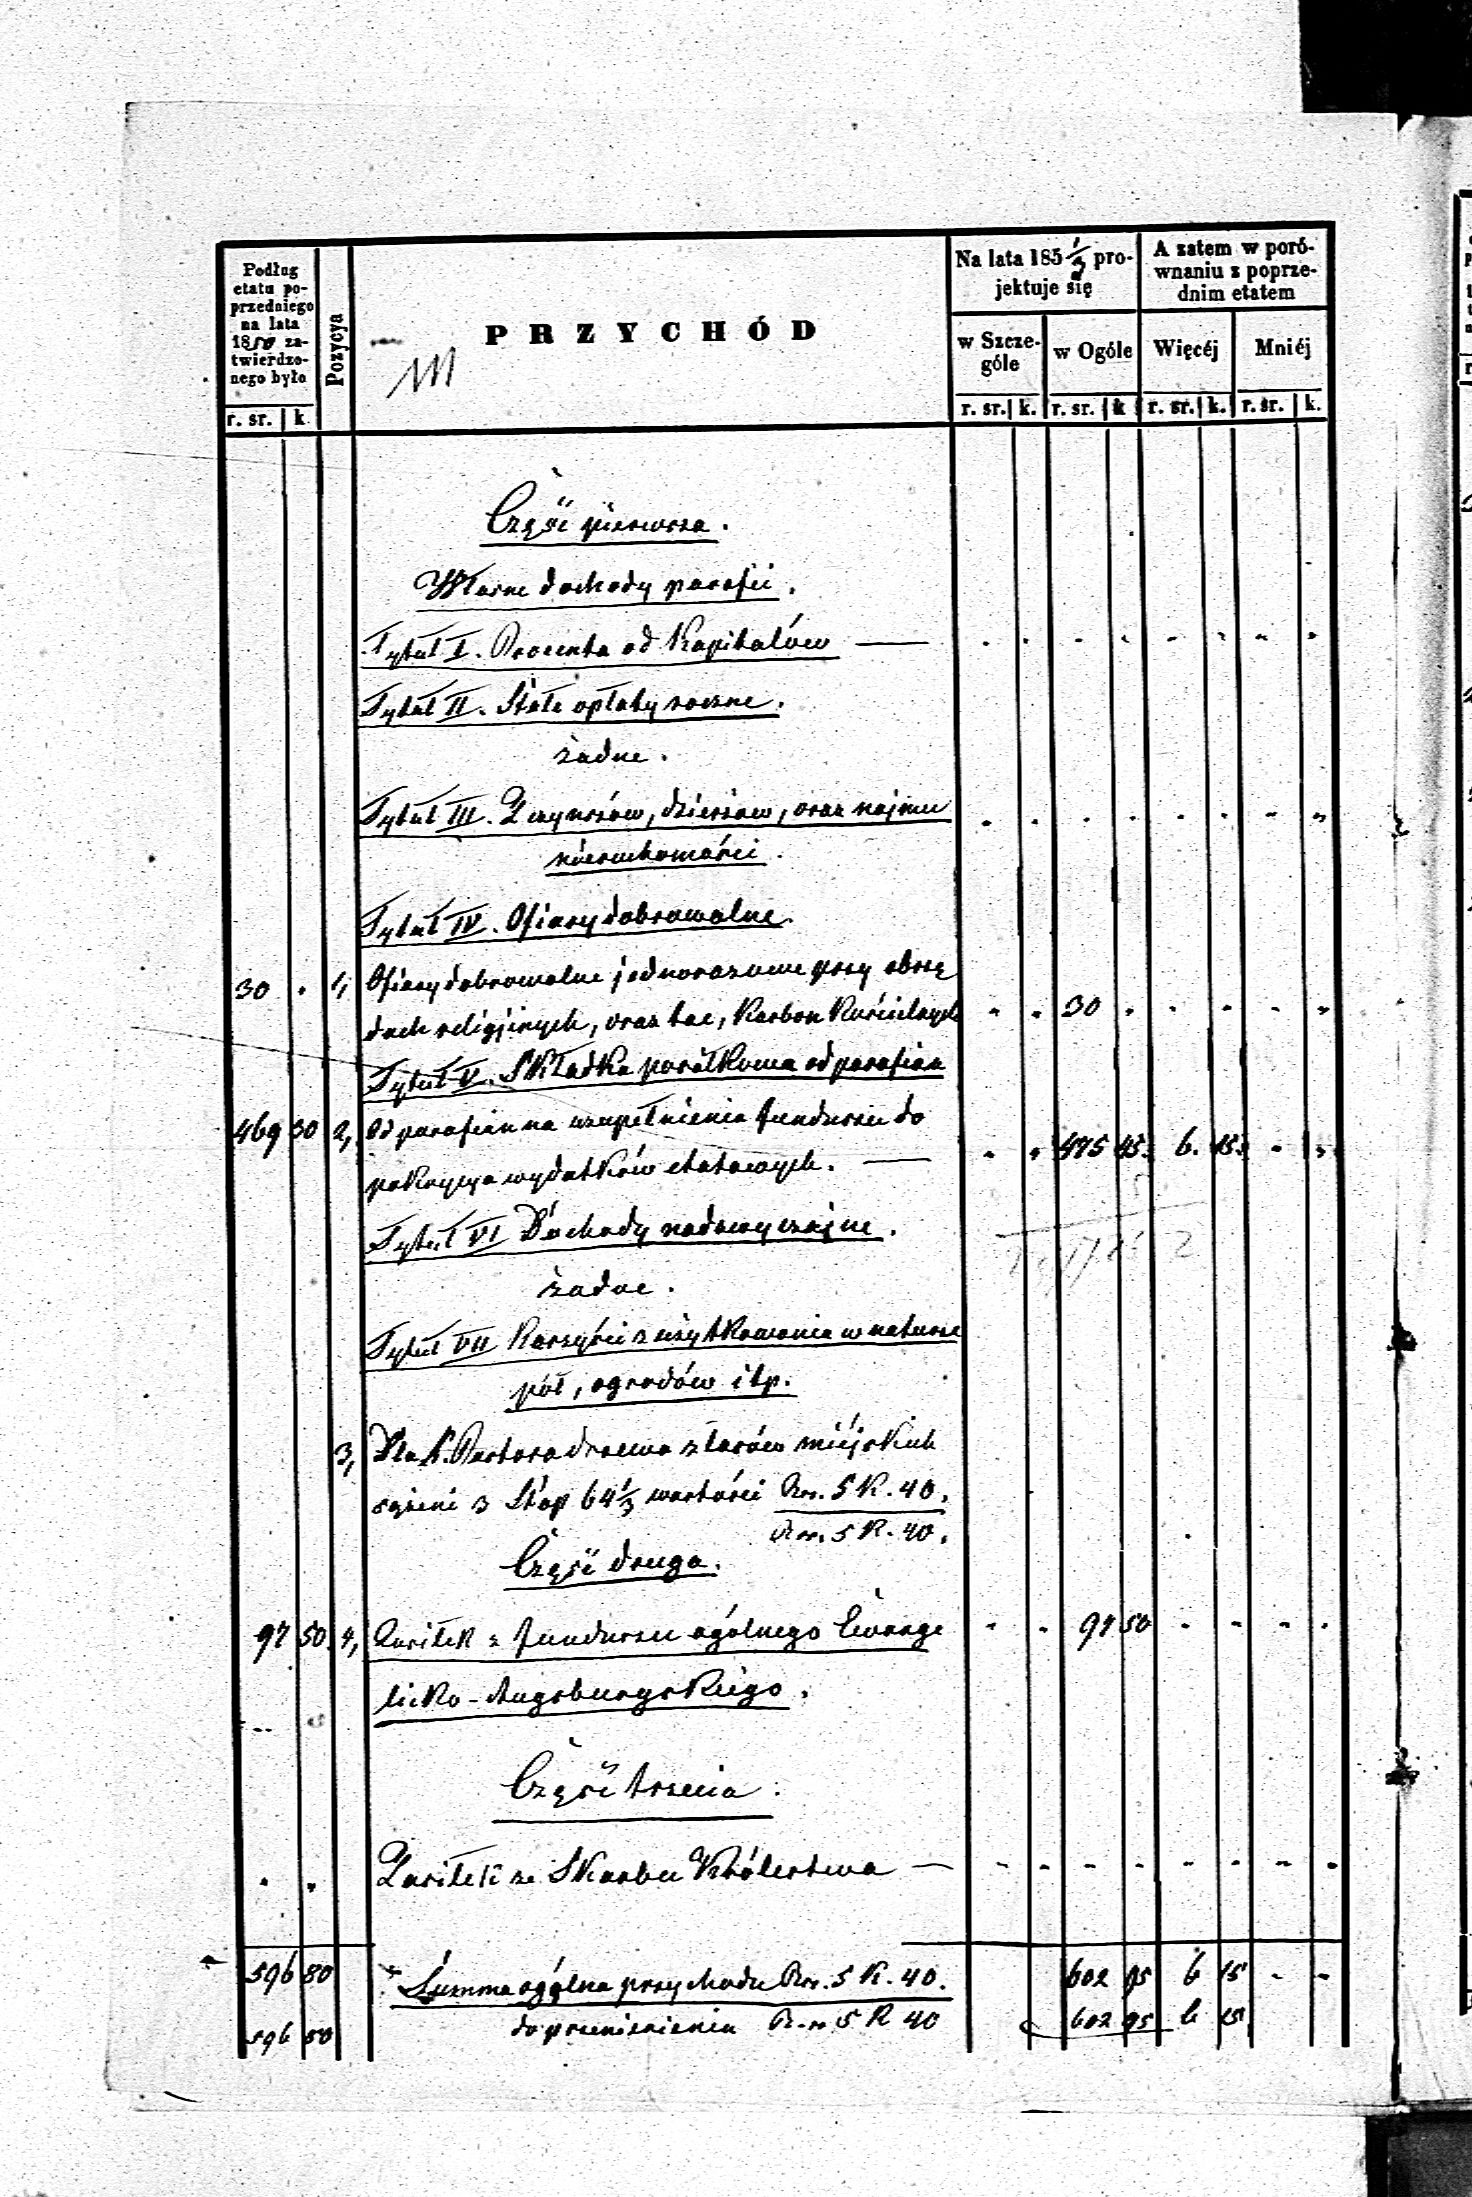 Podług etatu poprzedniego na lata 1850 zatwierdzonego było
Pozycya
PRZYCHÓD
Na lata 185 1/3 projektuje się
A zatem w porównaniu z poprzednim etatem
w Szczególe
w Ogóle
Więcéj
Mniéj
r. sr. k. r. sr. k. r. sr. k. r. sr. k. r. sr. k.
Część pierwsza.
Własne dochody parafii.
Tytuł I. Procenta od Kapitałów — . . . . . . . .
Tytuł II. Stałe opłaty roczne.
żadne.
Tytuł III. Z czynszów, dzierżaw, oraz najmu . . . . . . . .
nieruchomości.
Tytuł IV. Ofiary dobrowolne.
30 . 1, Ofiary dobrowolne jednorazowe przy obrzę
dach religijnych, oraz tac, Karbon Kościelnych . . 30 . . . . .
Tytuł V. Składka posiłkowa od parafian
469 30 2, Od parafian na uzupełnienie funduszu do
pokrycia wydatków etatowych. — . . 475 45. 6. 15. . .
Tytuł VI Dochody nadzwyczajne.
żadne.
Tytuł VII Korzyści z użytkowania w naturze
pól, ogrodów itp.
3, Dla X. Pastora drzewa z lasów miéjskich
sążeni 3 Stóp 64 1/3 wartości Rsr. 5 K. 40.
Rsr. 5 K. 40.
Część druga.
97 50. 4, Zasiłek z funduszu ogólnego Ewange . . 97 50 . . . .
licko-Augsburgskiégo.
Część trzecia.
. . Zasiłek ze Skarbu Królestwa — . . . . . . . .
596 80 Summa ogólna przychodu Rsr. 5 K. 40. 602 95 6 15 - -
596 80 do przeniesienia Rsr 5 K 40 602 95 6 15